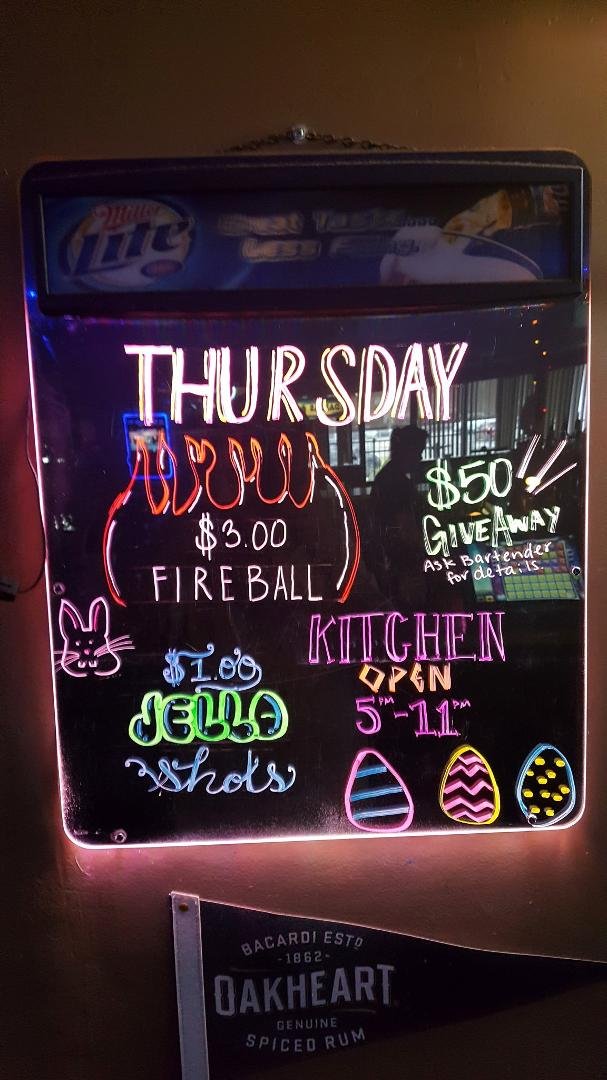 Miller
Lite
Great Taste...
Less Filling.
THURSDAY
$3.00
FIREBALL
$50
GIVEAWAY
Ask Bartender
for details.
KITCHEN
OPEN
5pm-11pm
$1.00
JELLO
Shots
BACARDI ESTD
-1862-
OAKHEART
GENUINE
SPICED RUM